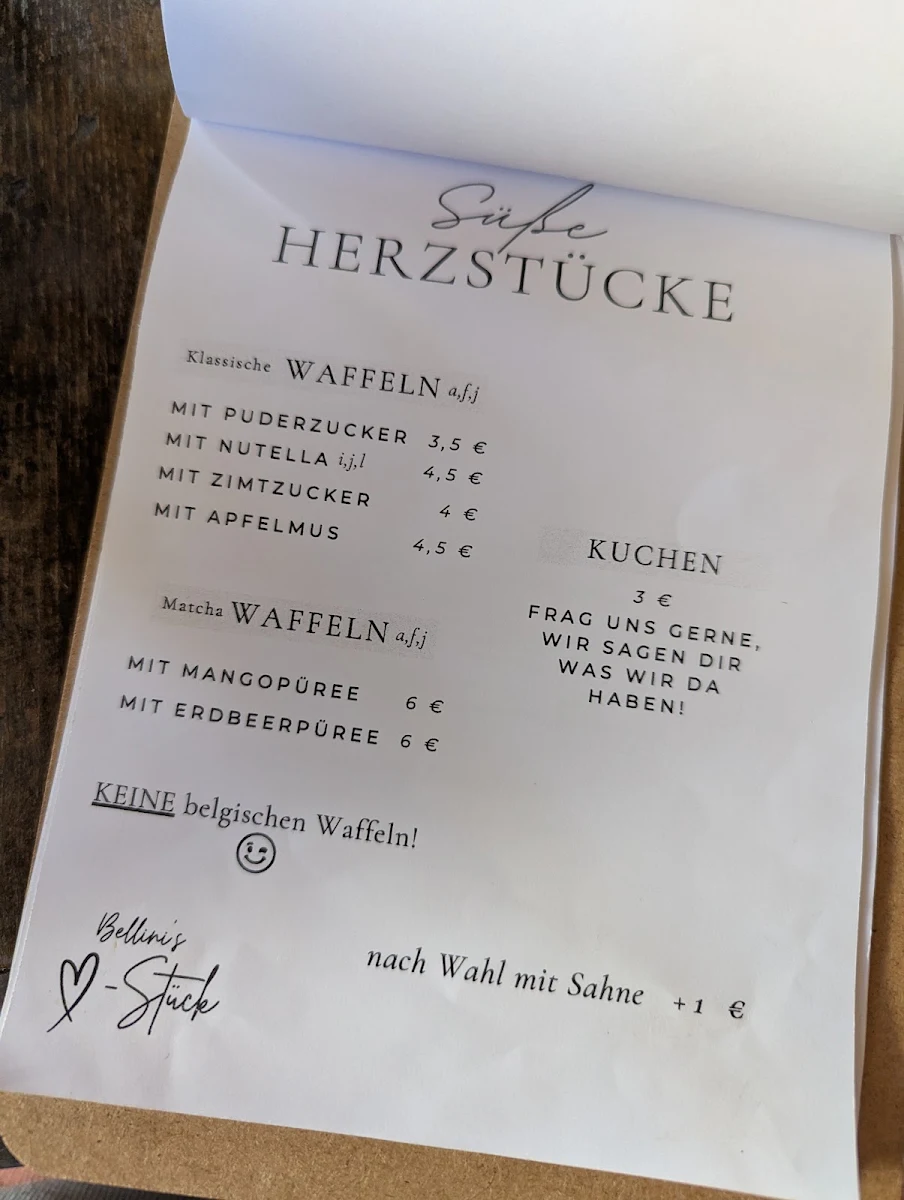 Süße
HERZSTÜCKE
Klassische WAFFELN a,f,j
MIT PUDERZUCKER 3,5 €
MIT NUTELLA i,j,l 4,5 €
MIT ZIMTZUCKER 4 €
MIT APFELMUS 4,5 €
Matcha WAFFELN a,f,j
MIT MANGOPÜREE 6 €
MIT ERDBEERPÜREE 6 €
KEINE belgischen Waffeln!
KUCHEN
3 €
FRAG UNS GERNE,
WIR SAGEN DIR
WAS WIR DA
HABEN!
Bellini's
-Stück
nach Wahl mit Sahne +1 €